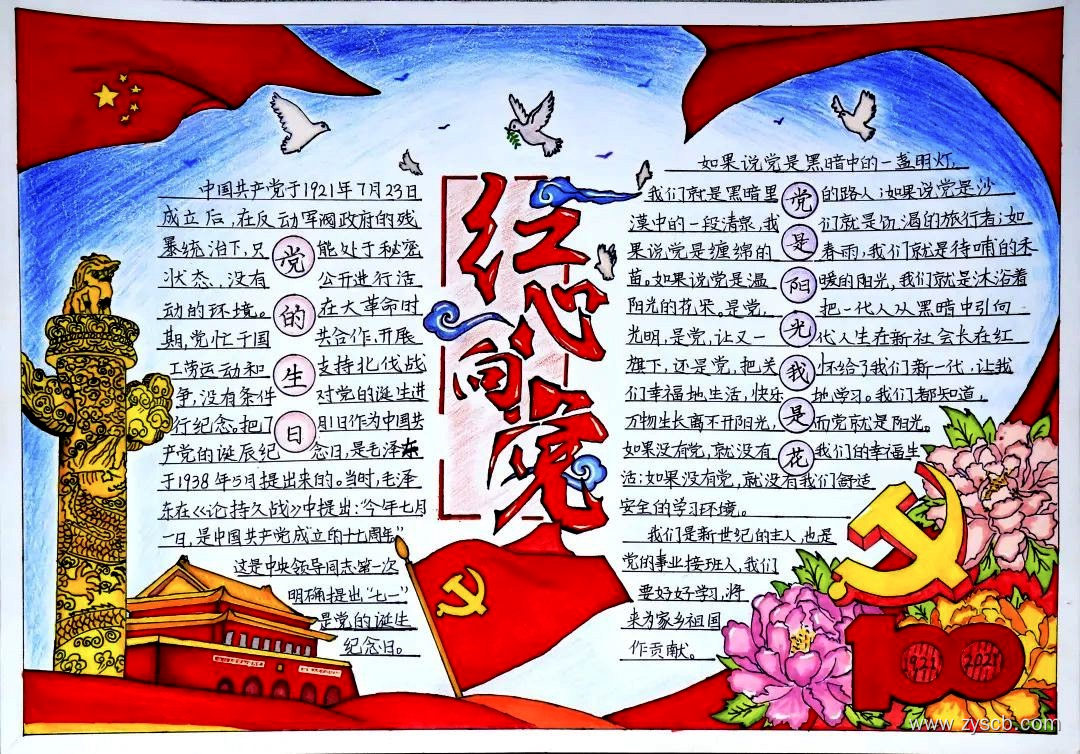 红心向党
党的生日
中国共产党于1921年7月23日
成立后,在反动军阀政府的残
暴统治下,只能处于秘密
状态,没有公开进行活
动的环境。在大革命时
期,党忙于国共合作、开展
工农运动和支持北伐战
争,没有条件对党的诞生进
行纪念。把7月1日作为中国共
产党的诞辰纪念日,是毛泽东
于1938年5月提出来的。当时,毛泽
东在《论持久战》中提出:“今年七月
一日,是中国共产党成立的十七周年”
这是中央领导同志第一次
明确提出“七一”
是党的诞生
纪念日。
党是阳光我是花
如果说党是黑暗中的一盏明灯,
我们就是黑暗里的路人;如果说党是沙
漠中的一段清泉,我们就是饥渴的旅行者;如
果说党是缠绵的春雨,我们就是待哺的禾
苗。如果说党是温暖的阳光,我们就是沐浴着
阳光的花朵。是党,把一代人从黑暗中引向
光明,是党,让又一代人生在新社会长在红
旗下,还是党,把关怀给了我们新一代,让我
们幸福地生活,快乐地学习。我们都知道,
万物生长离不开阳光,而党就是阳光。
如果没有党,就没有我们的幸福生
活;如果没有党,就没有我们舒适
安全的学习环境。
我们是新世纪的主人,也是
党的事业接班人,我们
要好好学习,将
来为家乡祖国
作贡献。
100
1921 2021
www.zyscb.com